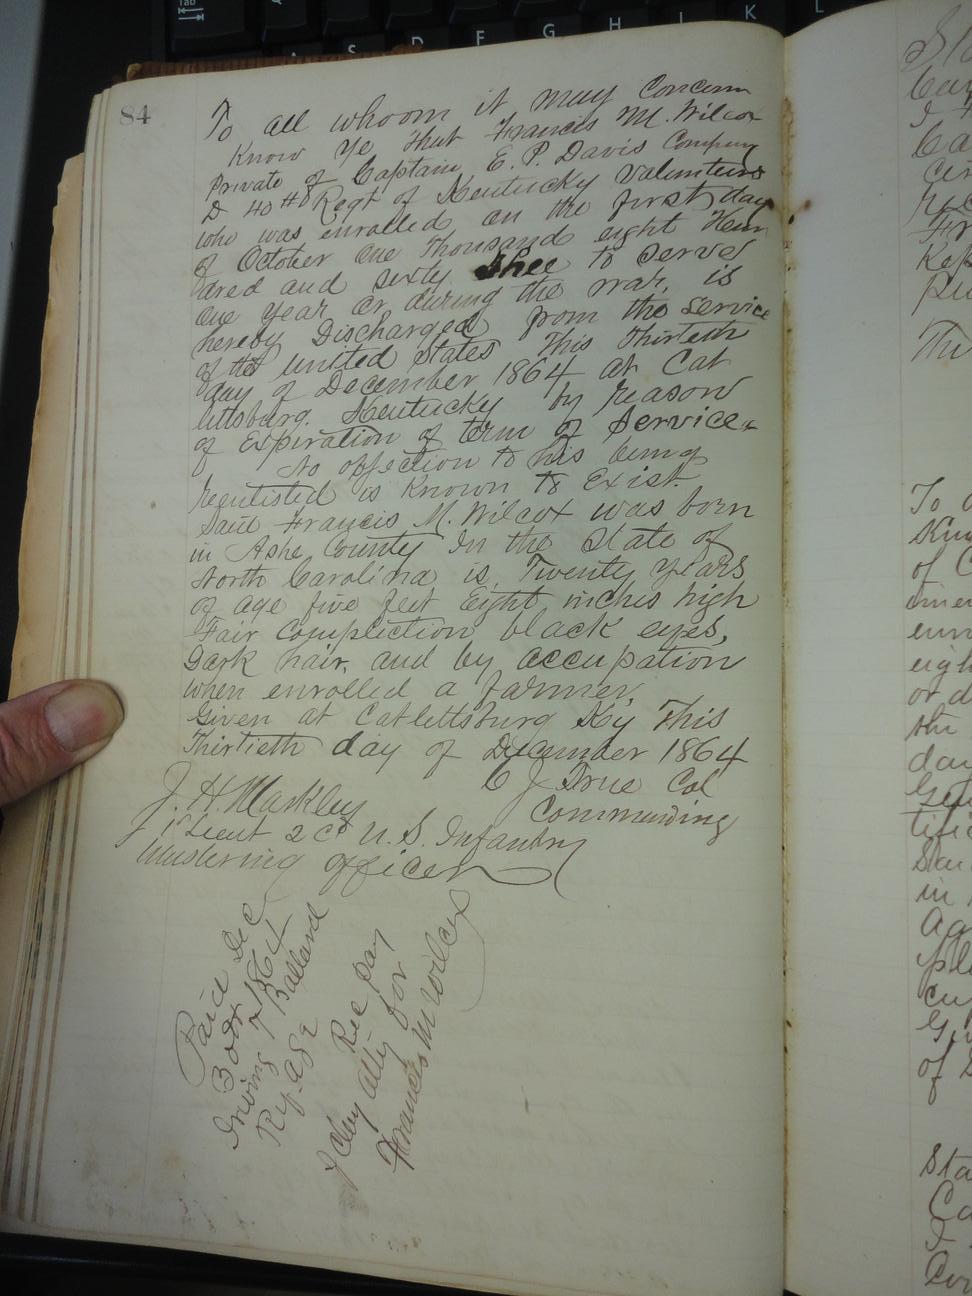 84
To all whoom it may Concern
Know Ye That Francis M. Wilcox
Private of Captain E. P. Davis Company
D 40th Regt of Kentucky Volunteers
who was enrolled on the first day
of October one Thousand eight Hun
dred and sixty thee to serve
one year or during the war, is
hereby Discharged from the service
of the United States This Thirtieth
day of December 1864 at Cat
lettsburg. Kentucky by reason
of Expiration of term of Service.
No objection to his being
reenlisted is Known to Exist.
Said Francis M. Wilcox was born
in Ashe County In the State of
North Carolina is, Twenty years
of age five feet Eight inches high
Fair Complection black eyes,
Dark hair, and by accupation
when enrolled a farmer.
Given at Catlettsburg Ky This
Thirtieth day of December 1864
C J True Col
Commanding
J. H. Markley
1st Lieut 2 Cd U. S. Infantry
Mustering officer
Paid Dec
30th 1864
Irving Ballard
Rec pay
atty for
Francis M Wilcox
To
of
day
in
of
Sta